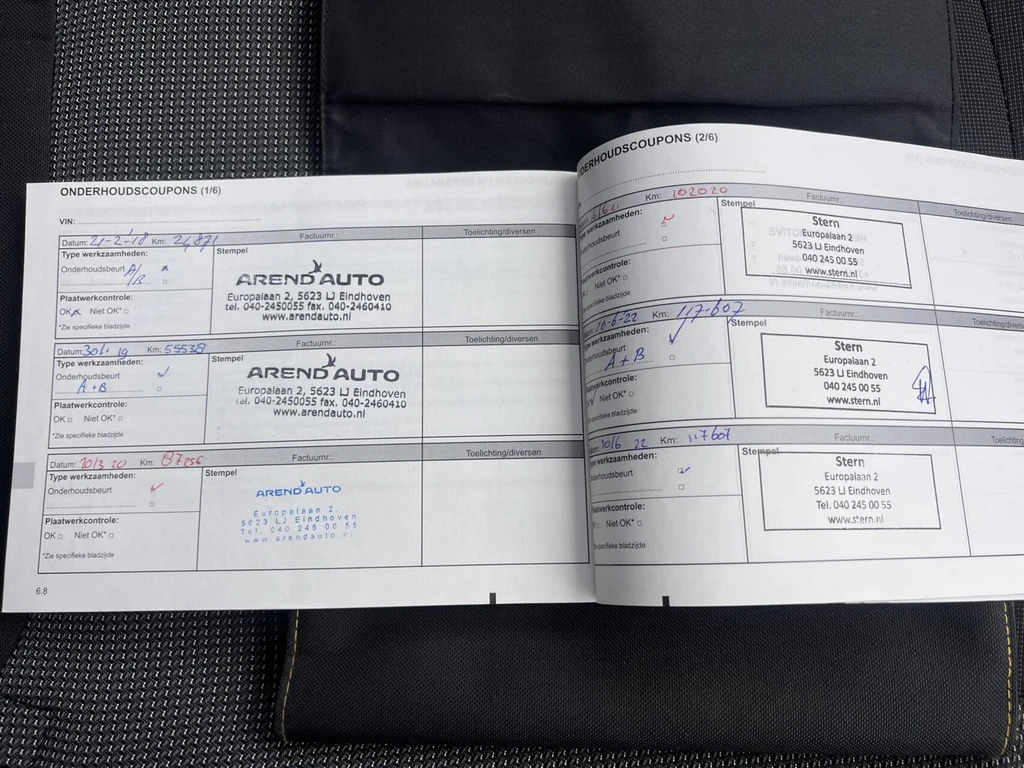 ONDERHOUDSCOUPONS (1/6)
VIN:
Datum: 21-2-'18 Km: 24,871 Factuurnr.: Toelichting/diversen
Type werkzaamheden: Stempel
Onderhoudsbeurt A/
B
Plaatwerkcontrole:
OK Niet OK*
*Zie specifieke bladzijde
ARENDAUTO
Europalaan 2, 5623 LJ Eindhoven
tel. 040-2450055 fax. 040-2460410
www.arendauto.nl
Datum: 19 Km: 55538 Factuurnr.: Toelichting/diversen
Type werkzaamheden: Stempel
Onderhoudsbeurt
A+B
Plaatwerkcontrole:
OK Niet OK*
*Zie specifieke bladzijde
ARENDAUTO
Europalaan 2, 5623 LJ Eindhoven
tel. 040-2450055 fax. 040-2460410
www.arendauto.nl
Datum: 20/3 20 Km: 87256 Factuurnr.: Toelichting/diversen
Type werkzaamheden: Stempel
Onderhoudsbeurt
Plaatwerkcontrole:
OK Niet OK*
*Zie specifieke bladzijde
ARENDAUTO
Europalaan 2,
5623 LJ Eindhoven
Tel. 040 245 00 55
www.arendauto.nl
6.8
DERHOUDSCOUPONS (2/6)
Km: 102020 Factuurnr.: Toelichting/diversen
Type werkzaamheden: Stempel
nderhoudsbeurt
Plaatwerkcontrole:
OK Niet OK*
*Zie specifieke bladzijde
Stern
Europalaan 2
5623 LJ Eindhoven
040 245 00 55
www.stern.nl
10-6-22 Km: 117-607 Factuurnr.: Toelichting/diverse
Type werkzaamheden: Stempel
nderhoudsbeurt
A+B
Plaatwerkcontrole:
Niet OK*
Zie specifieke bladzijde
Stern
Europalaan 2
5623 LJ Eindhoven
040 245 00 55
www.stern.nl
atum: 10/6 22 Km: 117607 Factuurnr.: Toelichting
ype werkzaamheden: Stempel
nderhoudsbeurt
laatwerkcontrole:
Niet OK*
Zie specifieke bladzijde
Stern
Europalaan 2
5623 LJ Eindhoven
Tel. 040 245 00 55
www.stern.nl